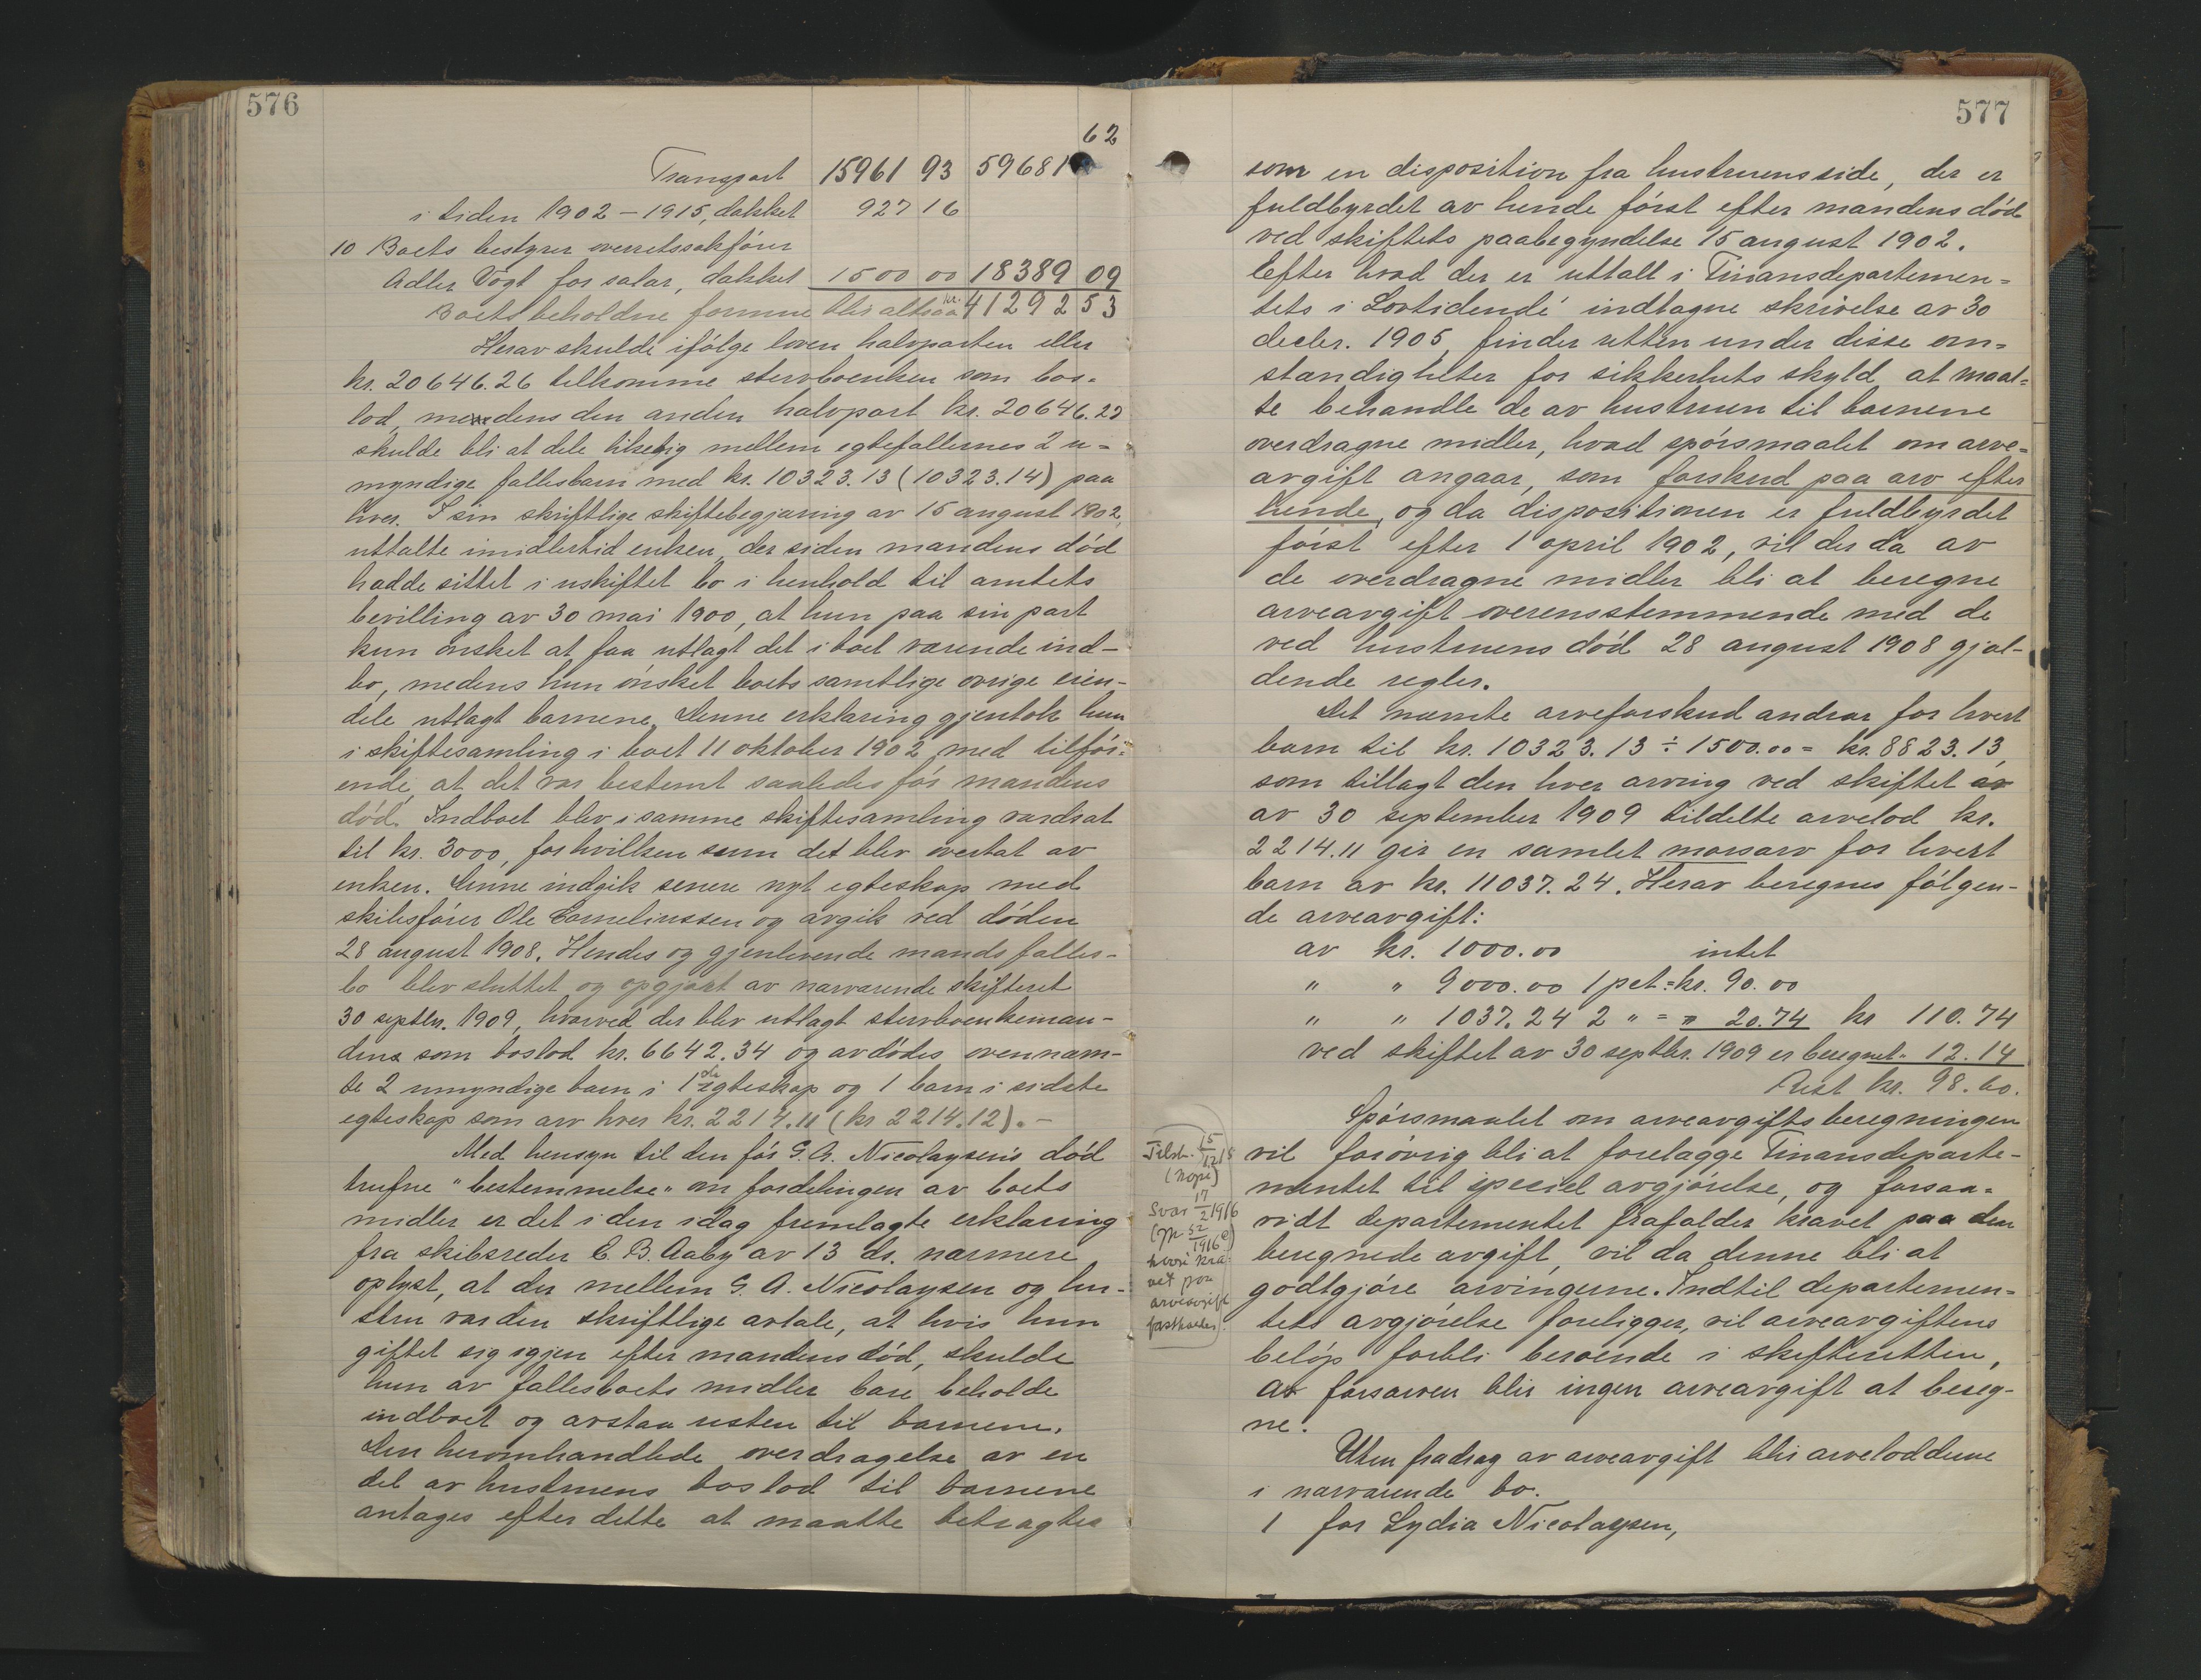 576
62
Transport 15961 93 59681
i tiden 1902 – 1915, dækket 927 16
10 Boets bestyrer overretssakfører
Adler Vogt for salær, dækket 1500 00 18389 09
Boets beholdne formue blir altsaa kr. 41292 53
Herav skulde ifølge loven halvparten eller
kr. 20646.26 tilkomme stervboenken som bos-
lod, medens den anden halvpart kr. 20646.27
skulde bli at dele likelig mellem egtefællernes 2 u-
myndige fællesbarn med kr. 10323.13 (10323.14) paa
hver. I sin skriftlige skiftebegjæring av 15 august 1902,
uttalte imidlertid enken, der siden mandens død
hadde sittet i uskiftet bo i henhold til amtets
bevilling av 30 mai 1900, at hun paa sin part
kun ønsket at faa utlagt det i boet værende ind-
bo, medens hun ønsket boets samtlige øvrige eien-
dele utlagt barnene. Denne erklæring gjentok hun
i skiftesamling i boet 11 oktober 1902 med tilføi-
ende, at det var bestemt saaledes før mandens
død. Indboet blev i samme skiftesamling værdsat
til kr. 3000, for hvilken sum det blev overtat av
enken. Denne indgik senere nyt egteskap med
skibsfører Ole Corneliussen og avgik ved døden
28 august 1908. Hendes og gjenlevende mands fælles-
bo blev sluttet og opgjort av nærværende skifteret
30 septbr. 1909, hvorved der blev utlagt stervboenkeman-
dens som boslod kr. 6642.34 og avdødes ovennævn-
te 2 umyndige barn i 1ste egteskap og 1 barn i sidste
egteskap som arv hver kr. 2214.11 (kr 2214.12). –
Med hensyn til den før G. A. Nicolaysens død
trufne "bestemmelse" om fordelingen av boets
midler er det i den idag fremlagte erklæring
fra skibsreder E. B. Aaby av 13 ds. nærmere
oplyst, at der mellem G. A. Nicolaysen og hu-
stru var den skriftlige avtale, at hvis hun
giftet sig igjen efter mandens død, skulde
hun av fællesboets midler bare beholde
indboet og avstaa resten til barnene.
Den heromhandlede overdragelse av en
del av hustruens boslod til barnene
antages efter dette at maatte betragtes
577
som en disposition fra hustruens side, der er
fuldbyrdet av hende først efter mandens død
ved skiftets paabegyndelse 15 august 1902.
Efter hvad der er uttalt i Finansdepartemen-
tets i Lovtidende indtagne skrivelse av 30
decbr. 1905, finder retten under disse om-
stændigheter for sikkerhets skyld at maat-
te behandle de av hustruen til barnene
overdragne midler, hvad spørsmaalet om arve-
avgift angaar, som forskud paa arv efter
hende, og da dispositionen er fuldbyrdet
først efter 1 april 1902, vil der da av
de overdragne midler bli at beregne
arveavgift overensstemmende med de
ved hustruens død 28 august 1908 gjæl-
dende regler.
Det nævnte arveforskud andrar for hvert
barn til kr. 10323.13 ÷ 1500.00 = kr. 8823.13,
som tillagt den hver arving ved skiftet av
av 30 september 1909 tildelte arvelod kr.
2214.11 gir en samlet morsarv for hvert
barn av kr. 11037.24. Herav beregnes følgen-
de arveavgift:
av kr. 1000.00 intet
" " 9000.00 1 pct = kr. 90.00
" " 1037.24 2 " = " 20.74 kr 110.74
ved skiftet av 30 septbr. 1909 er beregnet " 12.14
Rest kr. 98.60.
Spørsmaalet om arveavgiftsberegningen
vil forøvrig bli at forelægge Finansdeparte-
mentet til speciel avgjørelse, og forsaa-
vidt departementet frafalder kravet paa den
beregnede avgift, vil da denne bli at
godtgjøre arvingerne. Indtil departemen-
tets avgjørelse foreligger, vil arveavgiftens
beløp forbli beroende i skifteretten,
Av farsarven blir ingen arveavgift at bereg-
ne.
Uten fradrag av arveavgift blir arveloddene
i nærværende bo.
1 for Lydia Nicolaysen,
Tilskr. 15/12 15
(Kopi)
Svar 17/2 1916
hvori kra-
vet paa
arveavgift
fastholdes.